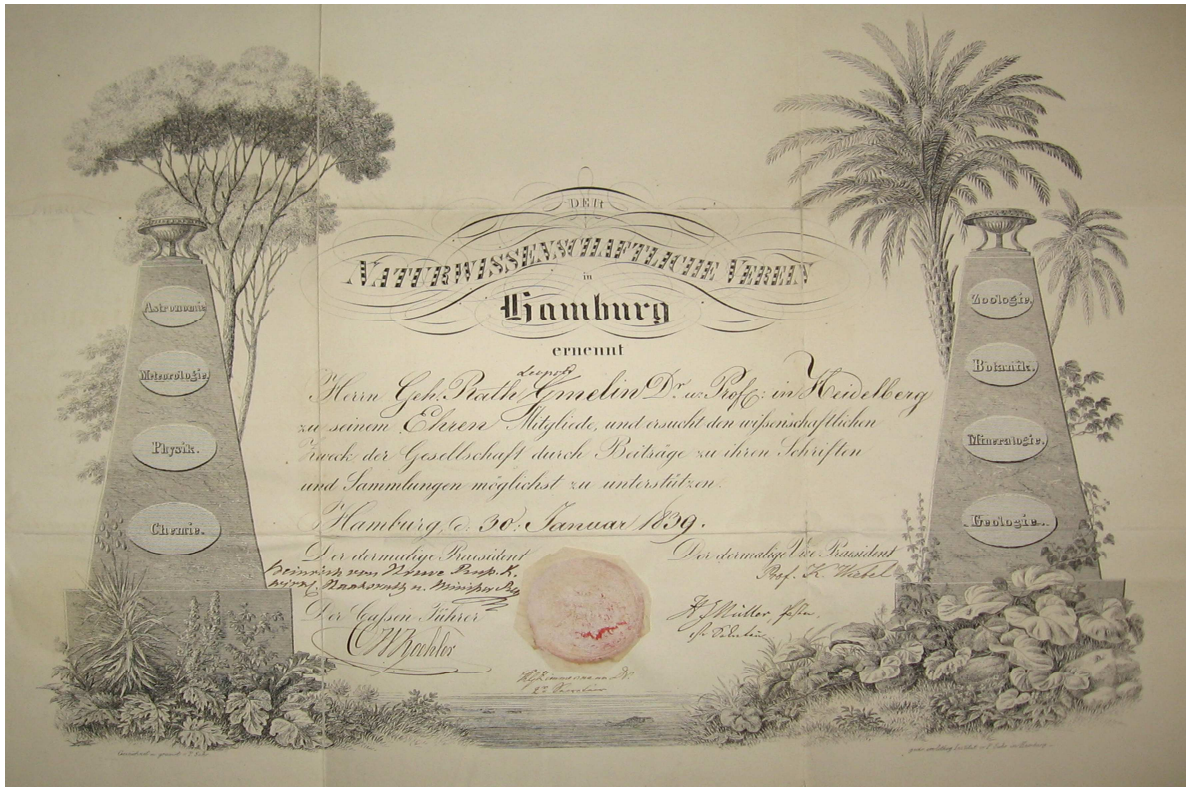 DER
NATURWISSENSCHAFTLICHE VEREIN
in
Hamburg
ernennt
Leopold
Herrn Geh. Rath Gmelin Dr. u. Prof. in Heidelberg
zu seinem Ehren Mitgliede, und ersucht den wissenschaftlichen
Zweck der Gesellschaft durch Beiträge zu ihren Schriften
und Sammlungen möglichst zu unterstützen.
Hamburg, d. 30. Januar 1839.
Der dermalige Praesident
Heinrich von Struve
Der dermalige Vice Praesident
Prof. K. Wiebel
Der Cassen Führer
Astronomie
Meteorologie.
Physik.
Chemie.
Zoologie.
Botanik.
Mineralogie.
Geologie.